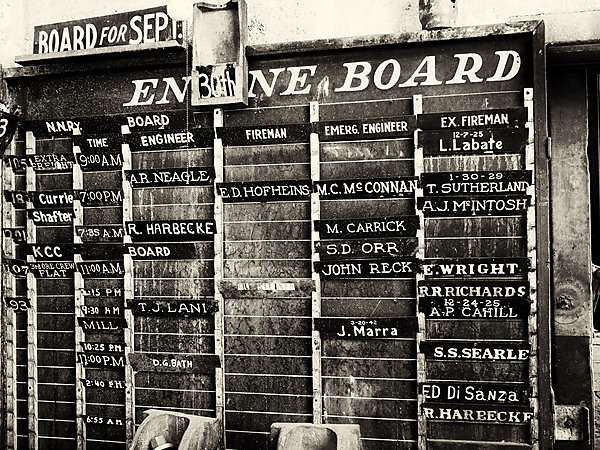 BOARD FOR SEPT.
30th
ENGINE BOARD
N.N.RY. BOARD
TIME ENGINEER FIREMAN EMERG. ENGINEER EX. FIREMAN
12-7-25
L. Labate
EXTRA FREIGHT 9:00 A.M.
1-30-29
A.R. NEAGLE
T. SUTHERLAND
Currie 7:00 P.M. E.D. HOFHEINS M.C. McCONNAN
A.J. McINTOSH
Shafter
7:35 A.M. R. HARBECKE M. CARRICK
KCC BOARD S.D. ORR
107 3rd ORE CREW FLAT 11:00 A.M. JOHN RECK E. WRIGHT
R.R. RICHARDS
12-24-25
93 9:30 A.M. T.J. LANI A.P. CAHILL
MILL
3-20-42
J. Marra
10:25 P.M. S.S. SEARLE
D.G. BATH
2:40 P.M. ED DiSanza
6:55 A.M. R. HARBECKE